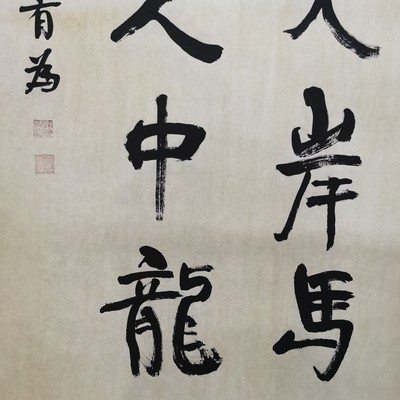 岸馬
人中龍
有為